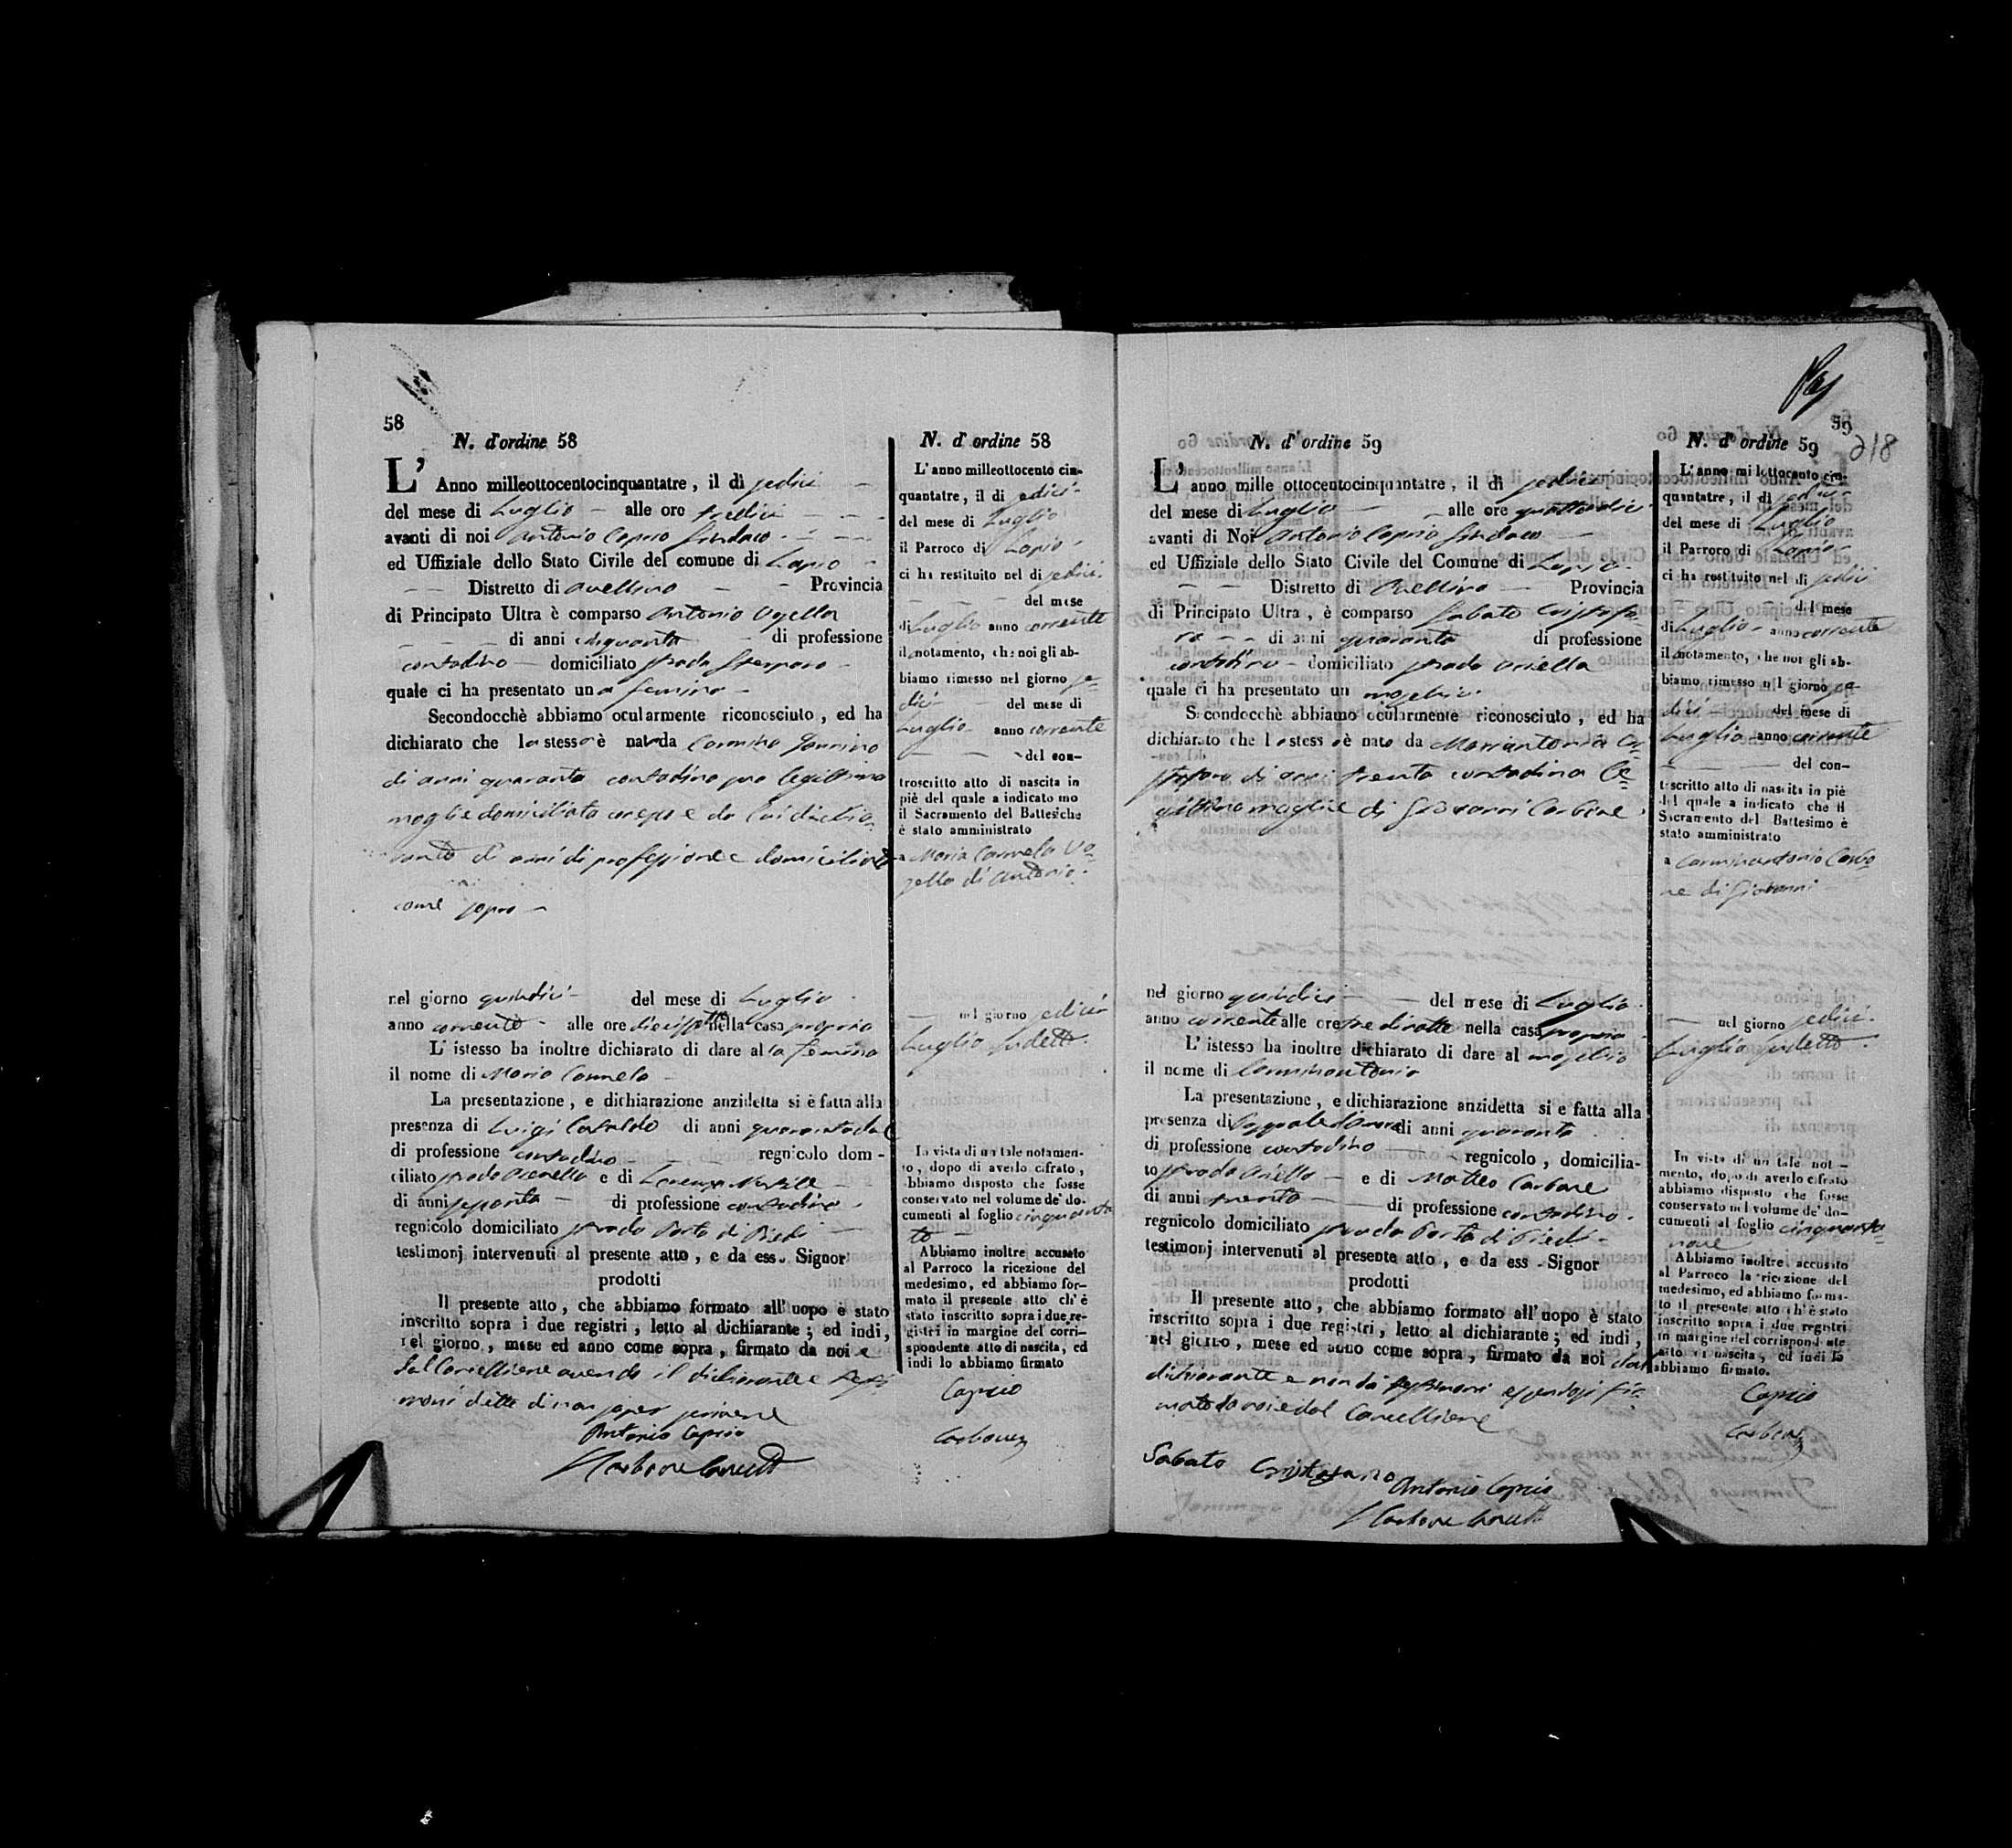 58
N. d'ordine 58
L' Anno milleottocentocinquantatre, il di sedici
del mese di Luglio alle ore tredici
avanti di noi Antonio Caprio Sindaco
ed Uffiziale dello Stato Civile del comune di Lapio
Distretto di Avellino Provincia
di Principato Ultra è comparso Antonio Vozella
di anni cinquanta di professione
contadino domiciliato strada
quale ci ha presentato una femina
Secondocchè abbiamo ocularmente riconosciuto, ed ha
dichiarato che la stessa è nata da Carmina
di anni quaranta contadina sua legittima
moglie domiciliata con esso e da lui dichia-
rante di anni di professione e domicilio
come sopra
nel giorno quindici del mese di Luglio
anno corrente alle ore diecissette nella casa propria
L' istesso ha inoltre dichiarato di dare alla femina
il nome di Maria Carmela
La presentazione, e dichiarazione anzidetta si è fatta alla
presenza di Luigi Cataldo di anni quarantadue
di professione contadino regnicolo domi-
ciliato strada e di Lorenzo
di anni sessanta di professione contadino
regnicolo domiciliato strada Porta di Piedi
testimonj intervenuti al presente atto, e da ess. Signor
prodotti
Il presente atto, che abbiamo formato all' uopo è stato
inscritto sopra i due registri, letto al dichiarante; ed indi,
nel giorno, mese ed anno come sopra, firmato da noi e
dal Cancelliere avendo il dichiarante e testi
moni detto di non saper scrivere
Antonio Caprio
Carbone Cancell
N. d' ordine 58
L' anno milleottocento cin-
quantatre, il di sedici
del mese di Luglio
il Parroco di Lapio
ci ha restituito nel di sedici
del mese
di Luglio anno corrente
il notamento, che noi gli ab-
biamo rimesso nel giorno se-
dici del mese di
Luglio anno corrente
del con-
troscritto atto di nascita in
piè del quale a indicato mo
il Sacramento del Battesiche
è stato amministrato
a Maria Carmela Vo-
zella di Antonio
nel giorno sedici
Luglio sudetto
In vista di un tale notamen-
to, dopo di averlo cifrato,
abbiamo disposto che fosse
conservato nel volume de' do-
cumenti al foglio cinquantot-
to
Abbiamo inoltre accusato
al Parroco la ricezione del
medesimo, ed abbiamo for-
mato il presente atto ch' è
stato inscritto sopra i due re-
gistri in margine del corri-
spondente atto di nascita, ed
indi lo abbiamo firmato
Caprio
Carbone
59
218
N. d' ordine 59
L' anno mille ottocentocinquantatre, il di sedici
del mese di Luglio alle ore quattordici
avanti di Noi Antonio Caprio Sindaco
ed Uffiziale dello Stato Civile del Comune di Lapio
Distretto di Avellino Provincia
di Principato Ultra, è comparso Sabato Cristofa-
ro di anni quaranta di professione
contadino domiciliato strada Ariella
quale ci ha presentato un maschio
Secondocchè abbiamo ocularmente riconosciuto, ed ha
dichiarato che lo stesso è nato da Mariantonia Cri-
stofaro di anni trenta contadina le-
gittima moglie di Giovanni Carbone
nel giorno quindici del mese di Luglio
anno corrente alle ore tre di notte nella casa propria
L' istesso ha inoltre dichiarato di dare al maschio
il nome di Carminantonio
La presentazione, e dichiarazione anzidetta si e fatta alla
presenza di Pasquale di anni quaranta
di professione contadino regnicolo, domicilia-
to strada Ariella e di Matteo Carbone
di anni trenta di professione contadino
regnicolo domiciliato strada Porta di Piedi
testimonj intervenuti al presente atto, e da ess. Signor
prodotti
Il presente atto, che abbiamo formato all' uopo è stato
inscritto sopra i due registri, letto al dichiarante; ed indi,
nel giorno, mese ed anno come sopra, firmato da noi dal
dichiarante e non da testimoni essendosi fir-
mato da noi e dal Cancelliere
Sabato Cristofaro
Antonio Caprio
Carbone Cancell
N. d' ordine 59
L' anno millottocento cin-
quantatre, il di sedici
del mese di Luglio
il Parroco di Lapio
ci ha restituito nel di sedici
del mese
di Luglio anno corrente
il notamento, che noi gli ab-
biamo rimesso nel giorno se-
dici del mese di
Luglio anno corrente
del con-
troscritto atto di nascita in piè
del quale a indicato che il
Sacramento del Battesimo è
stato amministrato
a Carminantonio Carbo-
ne di Giovanni
nel giorno sedici
Luglio sudetto
In vista di un tale not-
mento, dopo di averlo cifrato
abbiamo disposto che fosse
conservato nel volume de' do-
cumenti al foglio cinquanta-
nove
Abbiamo inoltre accusato
al Parroco la ricezione del
medesimo, ed abbiamo forma-
to il presente atto ch' è stato
inscritto sopra i due registri
in margine del corrispondente
atto di nascita, ed indi lo
abbiamo firmato.
Caprio
Carbone